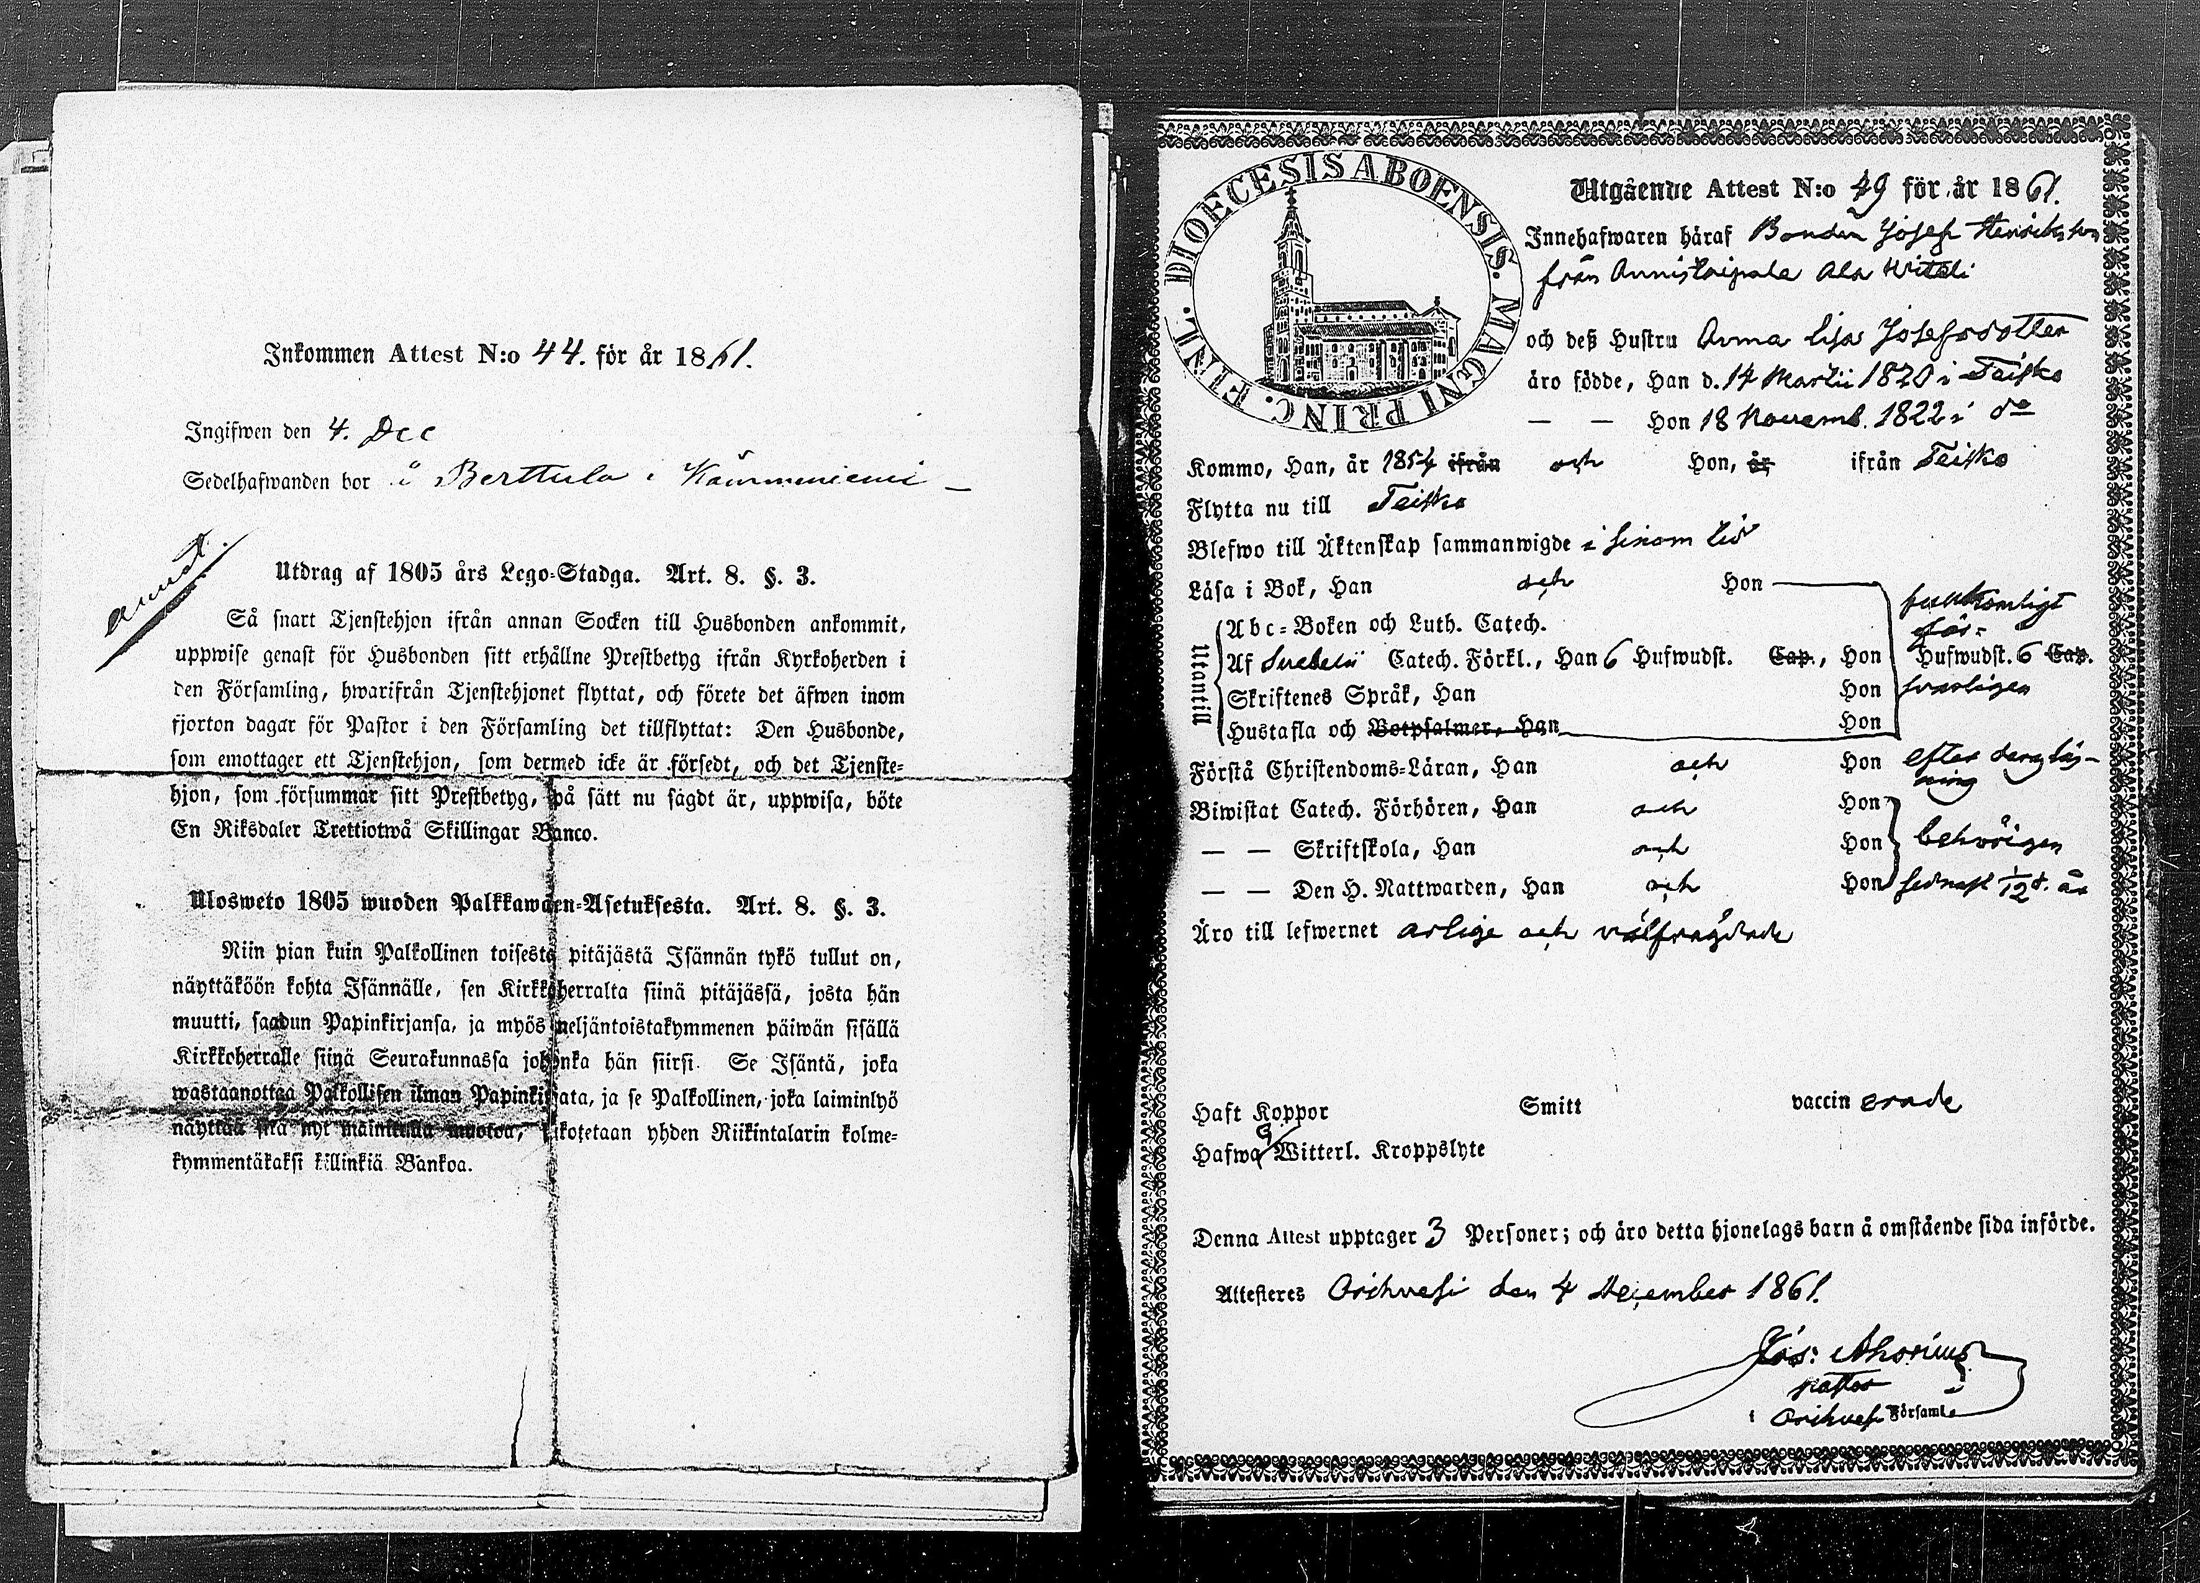 Inkommen Attest N:o 44. för år 1861.
Ingifwen den 4. Dec
Sedelhafwanden bor i Berttula i Kämmeniemi
Utdrag af 1805 års Lego-Stadga. Art. 8. §. 3.
Så snart Tjenstehjon ifrån annan Socken till Husbonden ankommit,
uppwise genast för Husbonden sitt erhållne Prestbetyg ifrån Kyrkoherden i
den Församling, hwarifrån Tjenstehjonet flyttat, och förete det äfwen inom
fjorton dagar för Pastor i den Församling det tillflyttat: Den Husbonde,
som emottager ett Tjenstehjon, som dermed icke är försedt, och det Tjenste-
hjon, som försummar sitt Prestbetyg, på sätt nu sagdt är, uppwisa, böte
En Riksdaler Trettiotwå Skillingar Banco.
Ulosweto 1805 wuoden Palkkawäen-Asetuksesta. Art. 8. §. 3.
Niin pian kuin Palkollinen toisesta pitäjästä Isännän tykö tullut on,
näyttäköön kohta Isännälle, sen Kirkkoherralta siinä pitäjässä, josta hän
muutti, saadun Papinkirjansa, ja myös neljäntoistakymmenen päiwän sisällä
Kirkkoherralle siinä Seurakunnassa johonka hän siirsi. Se Isäntä, joka
wastaanottaa Palkollisen ilman Papinkirjata, ja se Palkollinen, joka laiminlyö
näyttää sitä nyt mainitulla muotoa, sakotetaan yhden Riikintalarin kolme-
kymmentäkaksi killinkiä Bankoa.
DIOECESIS ABOENSIS. MAGNI PRINC. FINL.
Utgående Attest N:o 49 för år 1861.
Innehafwaren häraf Bonden Josef Henriksson
från Annistaipale Ala Kittili
och deß Hustru Anna Lisa Josefsdotter
äro födde, Han d. 14 Martii 1820 i Teisko
— — Hon 18 Novemb. 1822 i do
Kommo, Han, år 1854 ifrån och Hon, år ifrån Teisko
Flytta nu till Teisko
Blefwo till Äktenskap sammanwigde i sinom tid
Läsa i Bok, Han och Hon
Utantill
Abc-Boken och Luth. Catech. för-
Af Svebelii Catech. Förkl., Han 6 Hufwudst. Cap., Hon Hufwudst. 6 Cap.
Skriftenes Språk, Han Hon svarligen
Hustafla och Botpsalmer, Han Hon
Förstå Christendoms-Läran, Han och Hon efter deras läs-
ning
Biwistat Catech. Förhören, Han och Hon
— — Skriftskola, Han och Hon behörigen
— — Den H. Nattwarden, Han och Hon sednast 1/12 d. år
Äro till lefwernet ärlige och välfrägdade
Haft Koppor Smitt vaccinerade
Hafwa Witterl. Kroppslyte
Denna Attest upptager 3 Personer; och äro detta hjonelags barn å omstående sida införde.
Attesteres Orihvesi den 4 December 1861.
Jos: Ahonius
pastor
i Orihvesi Församl.